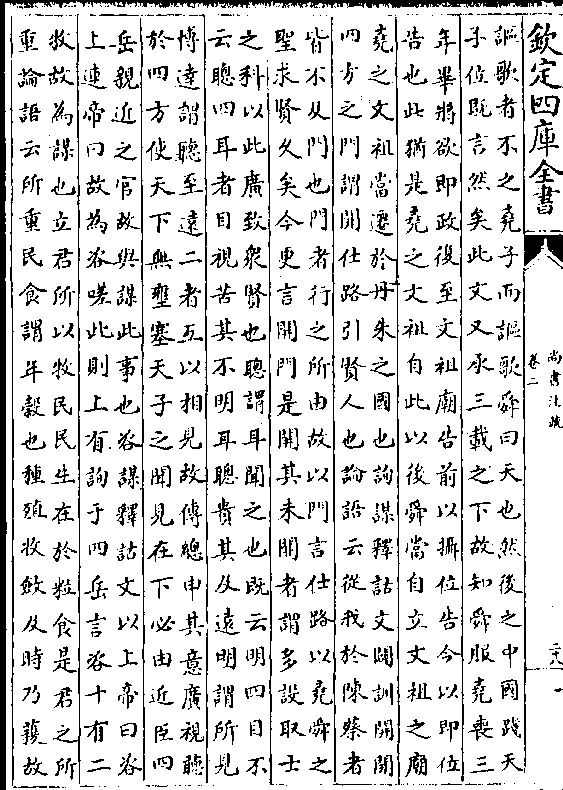 欽定四庫全書
尚書注疏
卷二
二十八
謳歌者不之堯子而謳歌舜曰天也然後之中國踐天
子位既言然矣此文又承三載之下故知舜服堯喪三
年畢將欲即政復至文祖廟告前以攝位告今以即位
告也此猶是堯之文祖自此以後舜當自立文祖之廟
堯之文祖當遷於丹朱之國也詢謀釋詁文闢訓開開
四方之門謂開仕路引賢人也論語云從我於陳蔡者
皆不及門也門者行之所由故以門言仕路以堯舜之
聖求賢久矣今更言開門是開其未開者謂多設取士
之科以此廣致衆賢也聰謂耳聞之也既云明四目不
云聰四耳者目視苦其不明耳聰貴其及遠明謂所見
博達謂聽至遠二者互以相見故傳總申其意廣視聽
於四方使天下無壅塞天子之聞見在下必由近臣四
岳親近之官故與謀此事也咨謀釋詁文以上帝曰咨
上連帝曰故為咨嗟此則上有詢于四岳言咨十有二
牧故為謀也立君所以牧民民生在於粒食是君之所
重論語云所重民食謂年穀也種殖收斂及時乃穫故